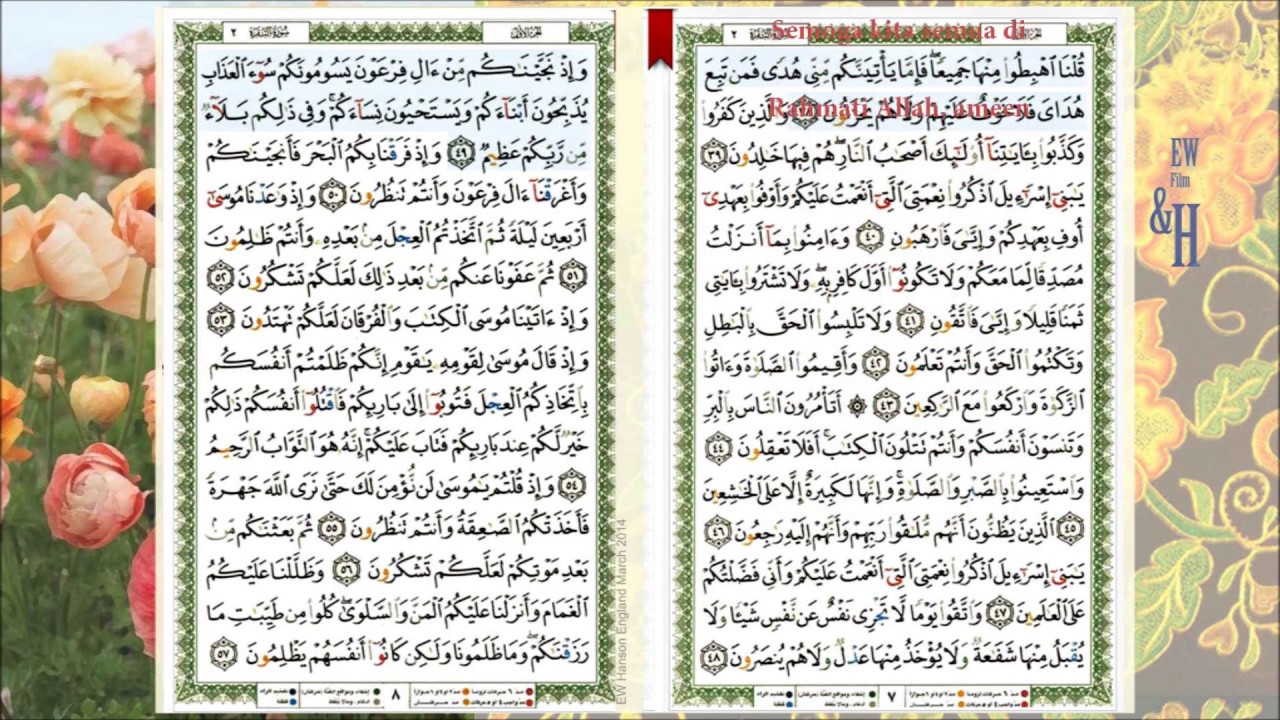 ٢ سورة البقرة
الجزء الأول
قُلْنَا اهْبِطُوا مِنْهَا جَمِيعًا ۖ فَإِمَّا يَأْتِيَنَّكُم مِّنِّي هُدًى فَمَن تَبِعَ
هُدَايَ فَلَا خَوْفٌ عَلَيْهِمْ وَلَا هُمْ يَحْزَنُونَ ﴿٣٨﴾ وَالَّذِينَ كَفَرُوا
وَكَذَّبُوا بِـَٔايَـٰتِنَآ أُولَـٰٓئِكَ أَصْحَـٰبُ النَّارِ ۖ هُمْ فِيهَا خَـٰلِدُونَ ﴿٣٩﴾
يَـٰبَنِىٓ إِسْرَٰٓءِيلَ اذْكُرُوا نِعْمَتِىَ الَّتِىٓ أَنْعَمْتُ عَلَيْكُمْ وَأَوْفُوا بِعَهْدِىٓ
أُوفِ بِعَهْدِكُمْ وَإِيَّـٰىَ فَارْهَبُونِ ﴿٤٠﴾ وَءَامِنُوا بِمَآ أَنزَلْتُ
مُصَدِّقًا لِّمَا مَعَكُمْ وَلَا تَكُونُوٓا أَوَّلَ كَافِرٍۭ بِهِۦ ۖ وَلَا تَشْتَرُوا بِـَٔايَـٰتِى
ثَمَنًا قَلِيلًا وَإِيَّـٰىَ فَاتَّقُونِ ﴿٤١﴾ وَلَا تَلْبِسُوا الْحَقَّ بِالْبَـٰطِلِ
وَتَكْتُمُوا الْحَقَّ وَأَنتُمْ تَعْلَمُونَ ﴿٤٢﴾ وَأَقِيمُوا الصَّلَوٰةَ وَءَاتُوا
الزَّكَوٰةَ وَارْكَعُوا مَعَ الرَّٰكِعِينَ ﴿٤٣﴾ ۞ أَتَأْمُرُونَ النَّاسَ بِالْبِرِّ
وَتَنسَوْنَ أَنفُسَكُمْ وَأَنتُمْ تَتْلُونَ الْكِتَـٰبَ ۚ أَفَلَا تَعْقِلُونَ ﴿٤٤﴾
وَاسْتَعِينُوا بِالصَّبْرِ وَالصَّلَوٰةِ ۚ وَإِنَّهَا لَكَبِيرَةٌ إِلَّا عَلَى الْخَـٰشِعِينَ
﴿٤٥﴾ الَّذِينَ يَظُنُّونَ أَنَّهُم مُّلَـٰقُوا رَبِّهِمْ وَأَنَّهُمْ إِلَيْهِ رَٰجِعُونَ ﴿٤٦﴾
يَـٰبَنِىٓ إِسْرَٰٓءِيلَ اذْكُرُوا نِعْمَتِىَ الَّتِىٓ أَنْعَمْتُ عَلَيْكُمْ وَأَنِّى فَضَّلْتُكُمْ
عَلَى الْعَـٰلَمِينَ ﴿٤٧﴾ وَاتَّقُوا يَوْمًا لَّا تَجْزِى نَفْسٌ عَن نَّفْسٍ شَيْـًٔا وَلَا
يُقْبَلُ مِنْهَا شَفَـٰعَةٌ وَلَا يُؤْخَذُ مِنْهَا عَدْلٌ وَلَا هُمْ يُنصَرُونَ ﴿٤٨﴾
٧
Semoga kita semua di
Rahmati Allah, ameen
٢ سورة البقرة
الجزء الأول
وَإِذْ نَجَّيْنَـٰكُم مِّنْ ءَالِ فِرْعَوْنَ يَسُومُونَكُمْ سُوٓءَ الْعَذَابِ
يُذَبِّحُونَ أَبْنَآءَكُمْ وَيَسْتَحْيُونَ نِسَآءَكُمْ ۚ وَفِى ذَٰلِكُم بَلَآءٌ
مِّن رَّبِّكُمْ عَظِيمٌ ﴿٤٩﴾ وَإِذْ فَرَقْنَا بِكُمُ الْبَحْرَ فَأَنجَيْنَـٰكُمْ
وَأَغْرَقْنَآ ءَالَ فِرْعَوْنَ وَأَنتُمْ تَنظُرُونَ ﴿٥٠﴾ وَإِذْ وَٰعَدْنَا مُوسَىٰٓ
أَرْبَعِينَ لَيْلَةً ثُمَّ اتَّخَذْتُمُ الْعِجْلَ مِنۢ بَعْدِهِۦ وَأَنتُمْ ظَـٰلِمُونَ
﴿٥١﴾ ثُمَّ عَفَوْنَا عَنكُم مِّنۢ بَعْدِ ذَٰلِكَ لَعَلَّكُمْ تَشْكُرُونَ ﴿٥٢﴾
وَإِذْ ءَاتَيْنَا مُوسَى الْكِتَـٰبَ وَالْفُرْقَانَ لَعَلَّكُمْ تَهْتَدُونَ ﴿٥٣﴾
وَإِذْ قَالَ مُوسَىٰ لِقَوْمِهِۦ يَـٰقَوْمِ إِنَّكُمْ ظَلَمْتُمْ أَنفُسَكُم
بِاتِّخَاذِكُمُ الْعِجْلَ فَتُوبُوٓا إِلَىٰ بَارِئِكُمْ فَاقْتُلُوٓا أَنفُسَكُمْ ذَٰلِكُمْ
خَيْرٌ لَّكُمْ عِندَ بَارِئِكُمْ فَتَابَ عَلَيْكُمْ ۚ إِنَّهُۥ هُوَ التَّوَّابُ الرَّحِيمُ
﴿٥٤﴾ وَإِذْ قُلْتُمْ يَـٰمُوسَىٰ لَن نُّؤْمِنَ لَكَ حَتَّىٰ نَرَى اللَّهَ جَهْرَةً
فَأَخَذَتْكُمُ الصَّـٰعِقَةُ وَأَنتُمْ تَنظُرُونَ ﴿٥٥﴾ ثُمَّ بَعَثْنَـٰكُم مِّنۢ
بَعْدِ مَوْتِكُمْ لَعَلَّكُمْ تَشْكُرُونَ ﴿٥٦﴾ وَظَلَّلْنَا عَلَيْكُمُ
الْغَمَامَ وَأَنزَلْنَا عَلَيْكُمُ الْمَنَّ وَالسَّلْوَىٰ ۖ كُلُوا مِن طَيِّبَـٰتِ مَا
رَزَقْنَـٰكُمْ ۖ وَمَا ظَلَمُونَا وَلَـٰكِن كَانُوٓا أَنفُسَهُمْ يَظْلِمُونَ ﴿٥٧﴾
٨
EW Hanson England March 2014
EW
Film
&H